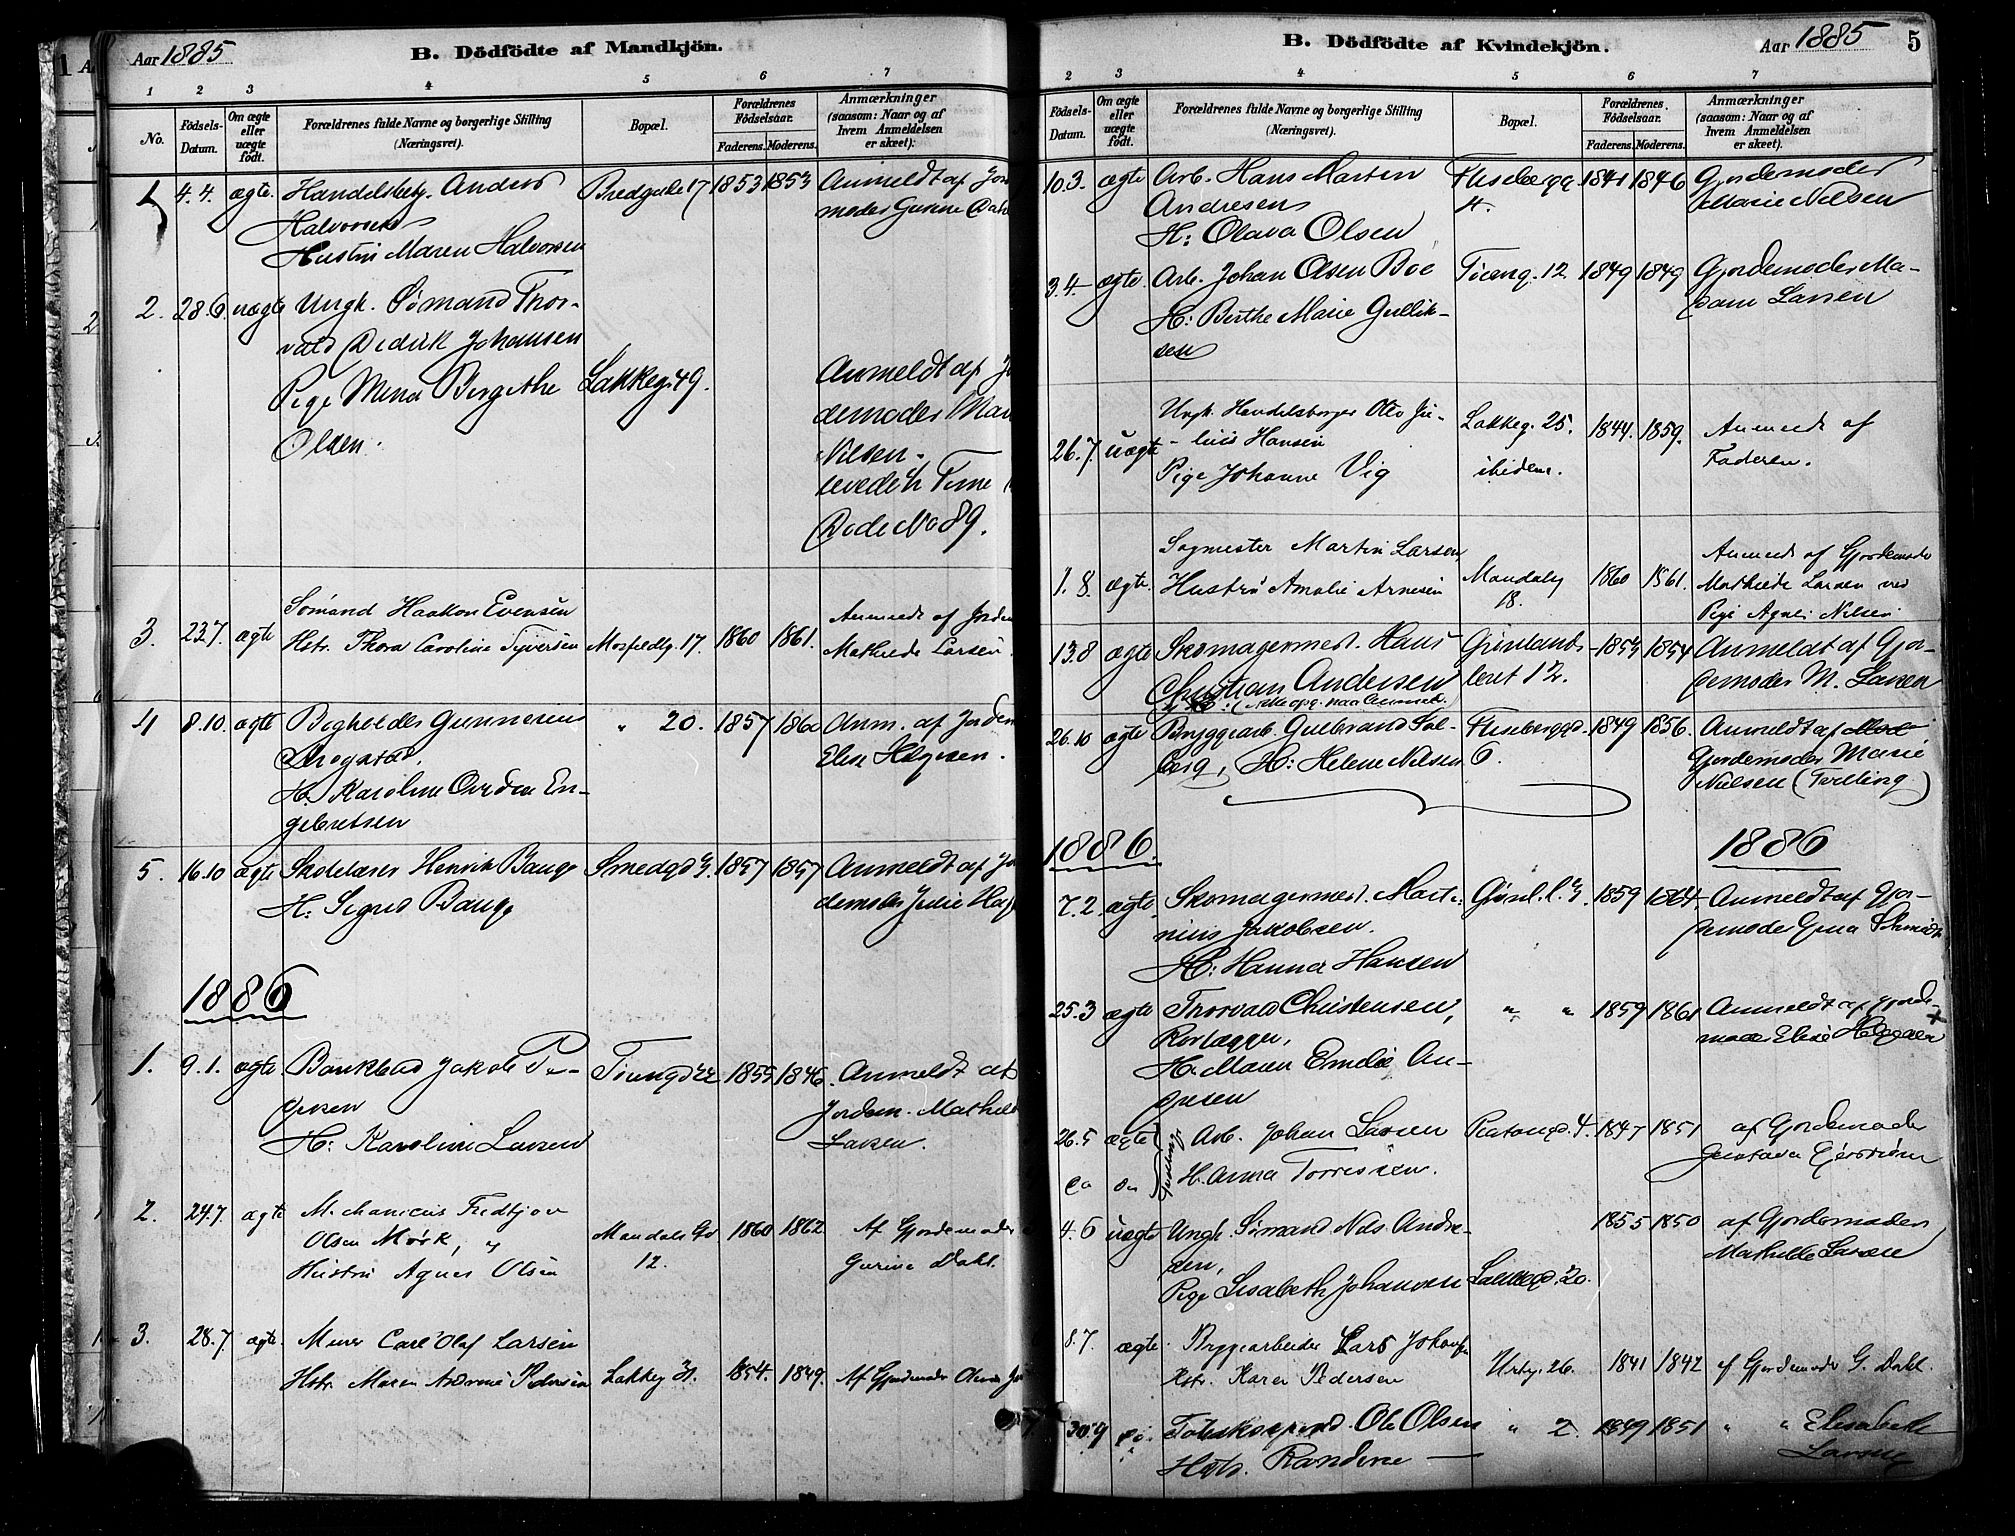 Aar 1885
B. Dödfödte af Mandkjön.
1 2 3 4 5 6 7
No.
Födsels-Datum.
Om ægte eller uægte födt.
Forældrenes fulde Navne og borgerlige Stilling (Næringsvei).
Bopæl.
Forældrenes Födselsaar.
Faderens. Moderens.
Anmærkninger (saasom: Naar og af hvem Anmeldelsen er skeet).
1 4.4. ægte. Handelsbetj. Anders Bredgade 17 1853 1853 Anmeldt af Jor
Halvorsen moder Gurine Dah
Hustru Maren Halvorsen
2. 28.6. uægte Ungk. Sømand Thor-
vald Didrik Johansen
Pige Mina Bergithe Lakkeg. 49. Anmeldt af J
Olsen. demoder Mar
Nilsen.
levede ½ Time
Døde No 89.
3. 23.7. ægte Sømand Haakon Evensen
Hstr. Thora Caroline Syversen Mosfeldtg. 17. 1860 1861. Anmeldt af Jordem
Mathilde Larsen.
4 8.10. ægte Gunnerius " 20. 1857 1860 Anm. af Jordem
Elise Helgesen.
H. Karoline En-
gebretsen
5. 16.10 ægte Skolelærer Henrik Bauge Smedgd 1857 1857 Anmeldt af Jo
H. Signe Bauge demoder Julie
1886
1. 9.1. ægte Jakob Pe- Tøiengd 22 1855 1846. Anmeldt af
dersen Jordem. Mathild
H: Karoline Larsen Larsen.
2. 24.7. ægte Mechanicus Fridtjov
Olsen Mørk, Mandals Gd 1860 1862 Af Gjordemoder
Hustru Agnes Olsen 12. Gurine Dahl.
3. 28.7. ægte. Murer Carl Olaf Larsen
Hstr. Maren Andrine Pedersen Lakkeg 31. 1854. 1849. Af Gjordemoder
B. Dödfödte af Kvindekjön.
Aar 1885 5
2 3 4 5 6 7
Födsels-Datum.
Om ægte eller uægte födt.
Forældrenes fulde Navne og borgerlige Stilling (Næringsvei).
Bopæl.
Forældrenes Födselsaar.
Faderens. Moderens.
Anmærkninger (saasom: Naar og af hvem Anmeldelsen er skeet).
10.3. ægte Arb. Hans Martin Fliseberggd 1841 1846 Gjordemoder
Andresen 4. Marie Nilsen
H: Olava Olsen
3.4. ægte Arb. Johan Olsen Boe Tøieng. 12 1849 1849 Gjordemoder Ma-
H: Berthe Marie Gullik- Larsen
sen
26.7. uægte Ungk. Handelsborger Otto Ju- Lakkeg. 25. 1844. 1859. Anmeldt af
- lius Hansen ibidem. Faderen.
Pige Johanne Vig
1.8. ægte. Sagmester Martin Larsen, Mandalsg 1860 1861. Anmeldt af Gjordemoder
Hustru Amalie Arnesen 18. Mathilde Larsen ved
Pige Agnes Nilsen.
13.8 ægte Skomagermest. Hans Grønlands- 1853 1854 Anmeldt af Gjor-
Christian Andersen leret 12. demoder M. Larsen
26.10 ægte Bryggearb. Gulbrand Sol- Fliseberggd. 1849 1856. Anmeldt af
berg, H: Helene Nilsen 6. Gjordemoder Marie
Nielsen (Tvilling)
1886. 1886
7.2. ægte. Skomagermest. Mart- Grønl. l. 1859 1864. Anmeldt af Gjor-
nius Jakobsen. demoder Gina Schmidt
H: Hanna Hansen
25.3 ægte Thorvald Christensen, " " 1859 1861 Anmeldt af Gjorde-
Rørlægger, moder Elise Helgesen
H. Maren Emilie An-
dresen
26.5 ægte Arb. Johan Larsen Platougd. 4. 1847 1851 af Gjordemoder
H. Anna Torressen. Gustava
4.6 uægte Ungk. Sømand Nils Andre- 1855 1850 af Gjordemoder
sen, Mathilde Larsen
Pige Lisabeth Johansen Lakkegd. 20.
8.7 ægte. Bryggearbeider Lars Johansen
Hstr. Karen Pedersen Urtg. 26. 1841 1842 af Gjordemoder G. Dahl
30.9 Ole Olsen " 2. 1849 1851 " " Elisabeth
Hstr. Randine — Larsen